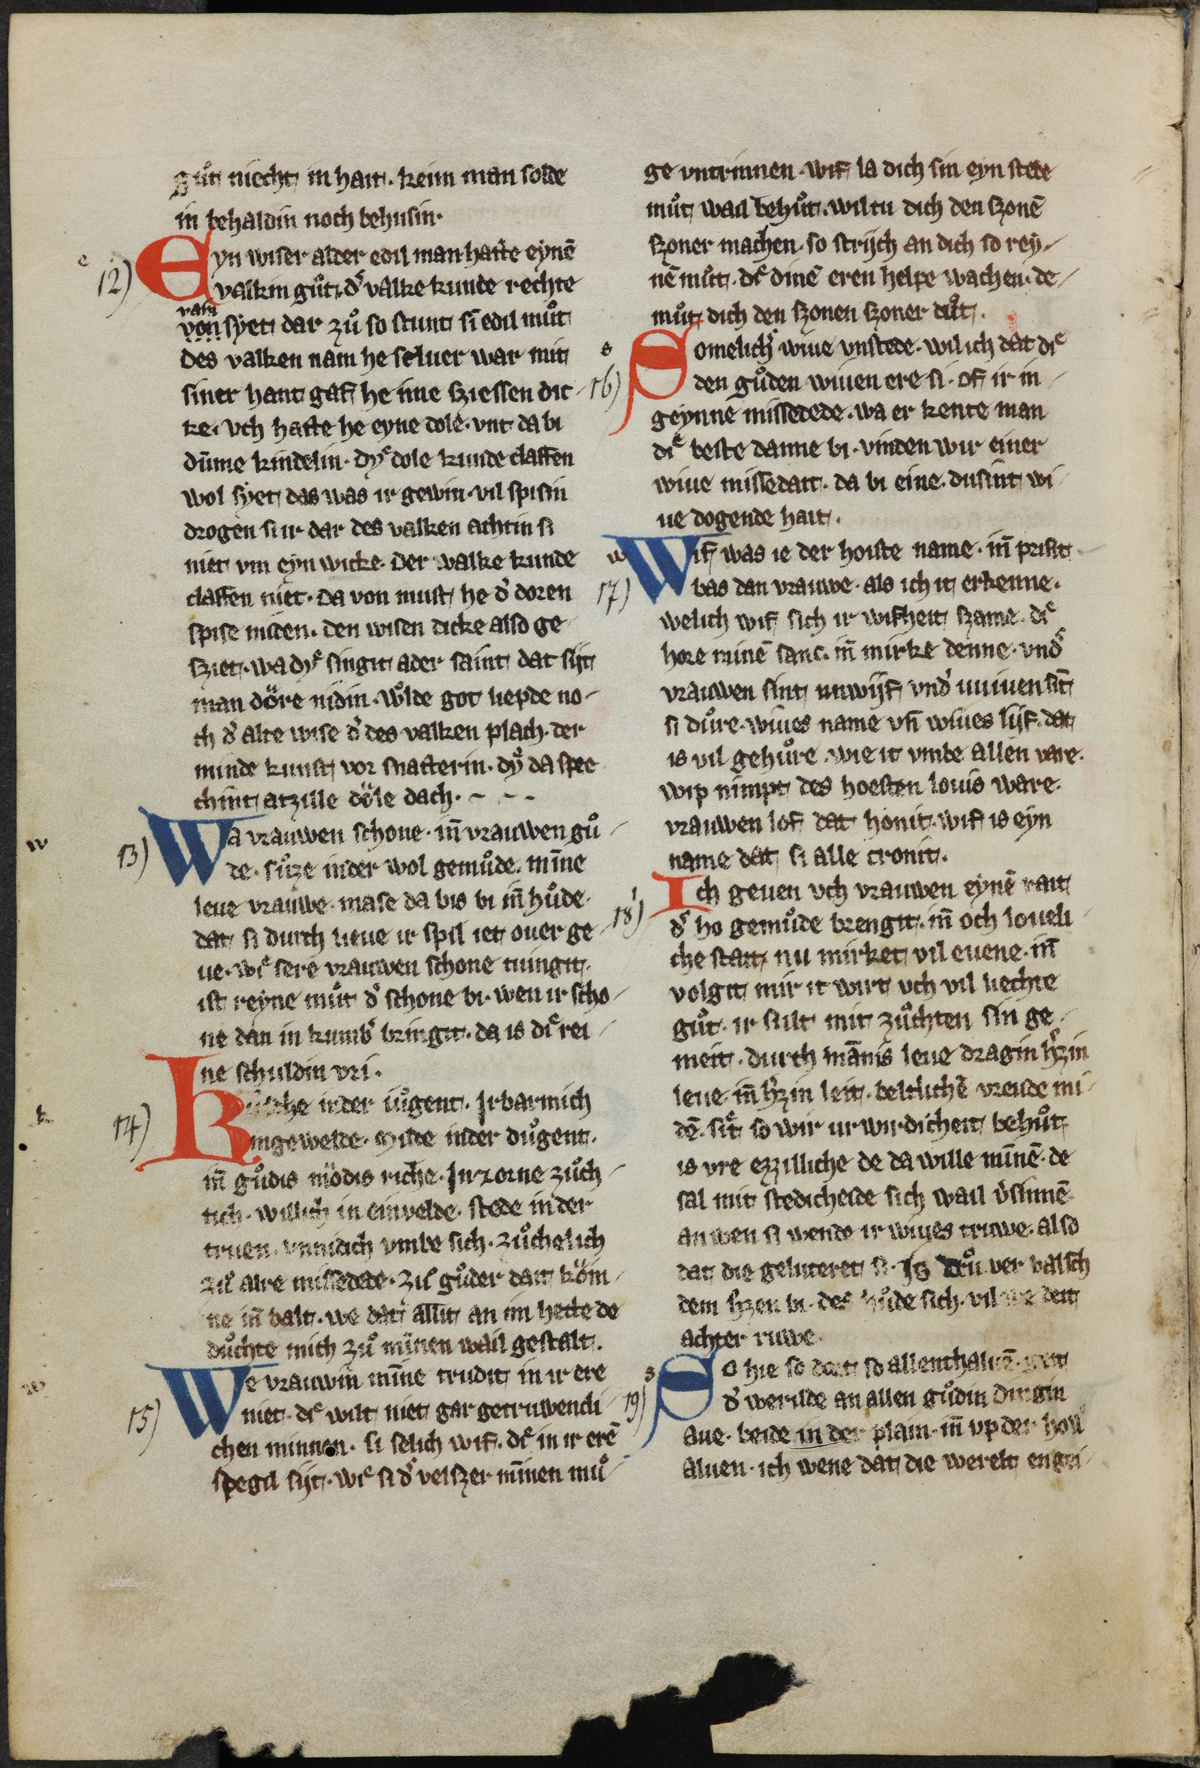 gůt niecht in hait. keiin man solde
in behaldin noch behusin.
e
12)
Eyn wiser alder edil man hatte eynē
valkin gůt. dͤ valke kunde rechte
vain
von syet dar zů so stunt sī edil můt
des valken nam he seluer war mit
siner hant gaf he īme sziessen dic
ke. vch hatte he eyne dole. vnt da bi
dūme kindelin. dyͤ dole kunde claffen
wol syet das was ir gewin. vil spisin
drogen si ir dar des valken achtin si
niet vm eyn wicke. Der valke kunde
claffen niet. Da von must he dͤ doren
spise miden. den wisen dicke also ge
sziet. wa dyͤ singit ader saint dat sijt
man döre nidin. wͦlde got liepde no-
ch dͤ alte wise dͤ des valken plach. der
minde kunst vor snatterin. dyͤ da spre
chint atzille döle dach. - - -
w
13)
Wa vrauwen schone. in̄ vrauwen gů
de. sůze inder wol gemůde. mīne
leue vrauwe. mase da bis bi in̄ hůde.
dat si durch lieue ir spil iet ouer ge
ue. wiͤ sere vrauwen schone tuingit.
ist reyne můt dͤ schone bi. wen ir scho
ne dan in kumbͤ bringit. da is diͤ rei
ne schuldin vri.
k
14)
Kusche inder iůgent. Irbarmich
ingewelde. milde inder důgent.
in̄ gůdis mödis riche. In zorne zůch
tich. willich in einvelde. stede inder
truen. vnnidich vmbe sich. zůchelich
zuͤ alre missedede. zuͤ gůder dait köm
ne in̄ balt. we dat allit an im hette de
důchte mich zů minen wail gestalt.
w
15)
We vrauwin mīne trudit in ir ere
niet. deͤ wilt niet gar getruwencli
chen minnen. si selich wif. deͤ in ir erē
spegil sijt. wiͤ si dͤ velszer mīnen mů
ge vntrinnen. wif la dich sin eyn stede
můt wail behůt. wiltu dich den szonē
szoner machen. so strijch an dich so rey
nē můt. deͤ dinē eren helpe wachen. de
můt dich den szonen szoner důt.
s
16)
Somelichͤ wiue vnstede. wil ich dat diͤ
den gůden wiuen ere si. of ir in
geynne missedede. wa er kente man
diͤ beste danne bi. vinden wir einer
wiue missedait. da bi eine. dusint wi
ue dogende hait.
w
17)
Wif was ie der hoiste name. in̄ prisit
bas dan vrauwe. als ich it erkenne.
welich wif sich ir wifheit szame. deͤ
hore minē sanc. in̄ mirke denne. vndͤ
vrauwen sint unwijf. vndͤ wiuen sīt
si důre. wiues name vn̄ wiues lijf. dat
is vil gehůre. wie it vmbe allen vare.
wip nimpt des hoesten louis ware.
vrauwen lof dat honit. wif is eyn
name dat si alle cronit.
i
18)
Ich geuen vch vrauwen eynē rait
dͤ ho gemůde brengit. in̄ och loueli
che stait nu mirket vil euene. in̄
volgit mir it wirt vch vil liechte
gůt. ir sult mit zůchten sin ge
meit. durch mānis leue dragin hͤzin
leue. in̄ hͤzin leit. beltlichē vreude mi
dē. sīt so wir ur wirdicheit behůt
is vre ezzilliche de da wille mīnē. de
sal mit stedicheide sich wail vͤsinnē
an wen si wende ir wiues truwe. also
dat die geluteret si. Is dru ver valsch
dem hͤzen bi. des hůde sich. vil we deit
achter ruwe.
s
19)
So hie so dort so allenthaluē. geit
dͤ werilde an allen gůdin dingin
aue. beide in der plain. in̄ vp der hoil
aluen. ich wene dat die werelt